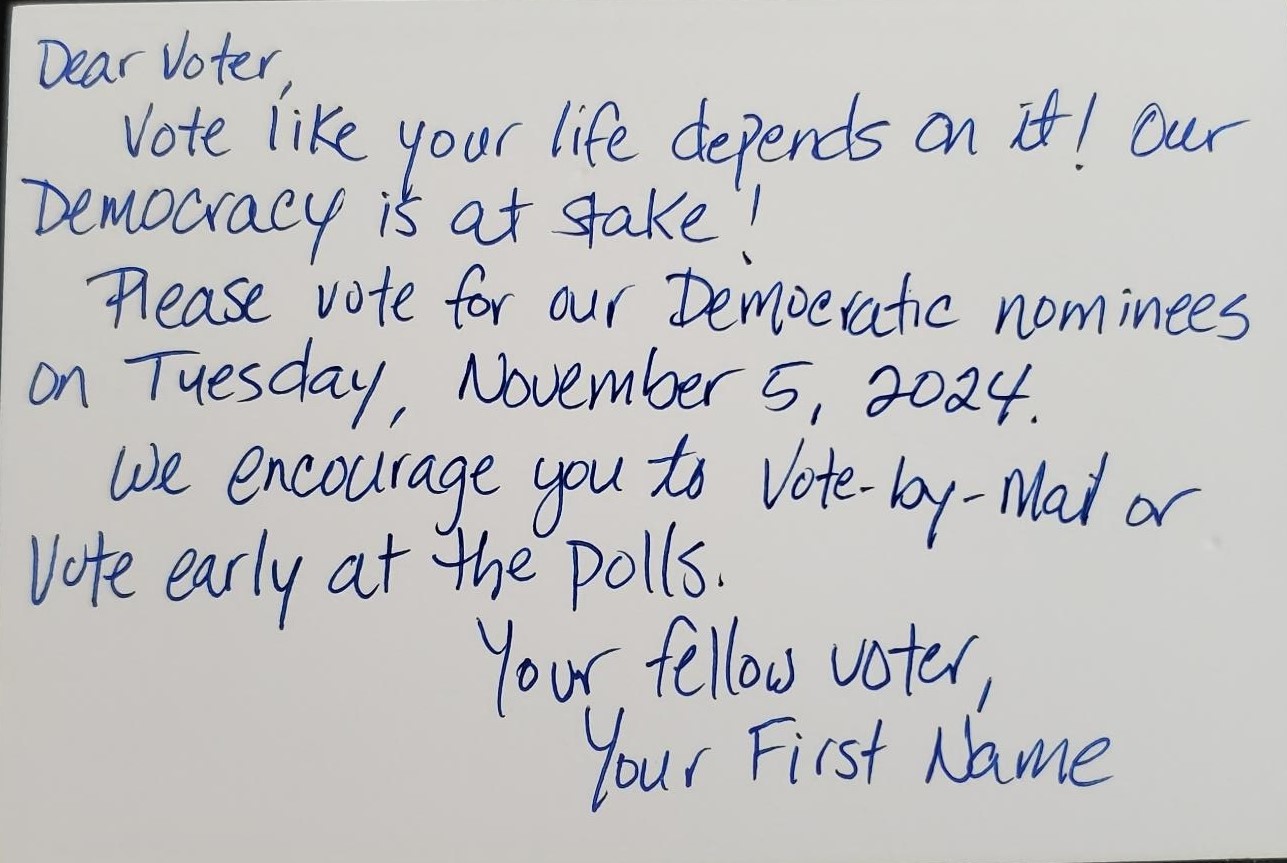 Dear Voter,
Vote like your life depends on it! Our
Democracy is at stake!
Please vote for our Democratic nominees
on Tuesday, November 5, 2024.
We encourage you to Vote-by-Mail or
Vote early at the polls.
Your fellow voter,
Your First Name